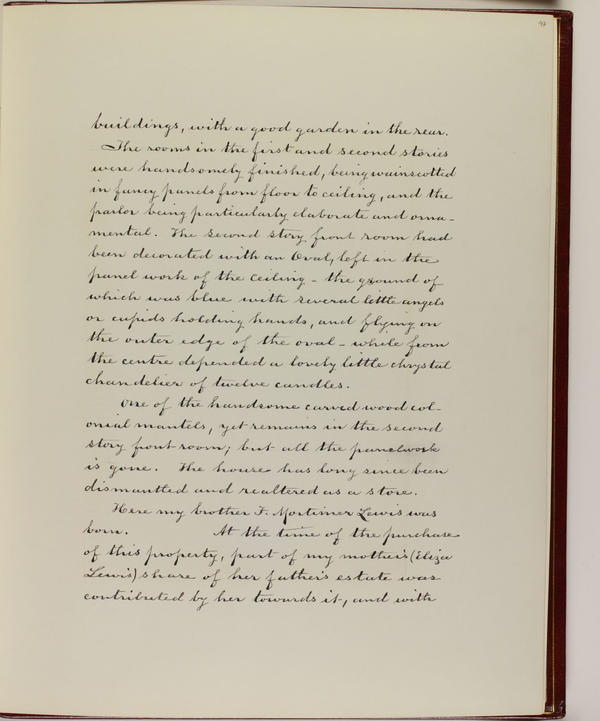 buildings, with a good garden in the rear.
The rooms in the first and second stories
were handsomely finished, being wainscotted
in fancy panels from floor to ceiling, and the
parlor being particularly elaborate and orna-
mental. The second story front room had
been decorated with an Oval, left in the
panel work of the ceiling - the ground of
which was blue with several little angels
or cupids holding hands, and flying on
the outer edge of the oval - while from
the centre depended a lovely little chrystal
chandelier of twelve candles.
One of the handsome carved wood col-
onial mantels, yet remains in the second
story front room; but all the panelwork
is gone. The house has long since been
dismantled and realtered as a store.
Here my brother F. Mortimer Lewis was
born. At the time of the purchase
of this property, part of my mother's (Eliza
Lewis) share of her father's estate was
contributed by her towards it, and with